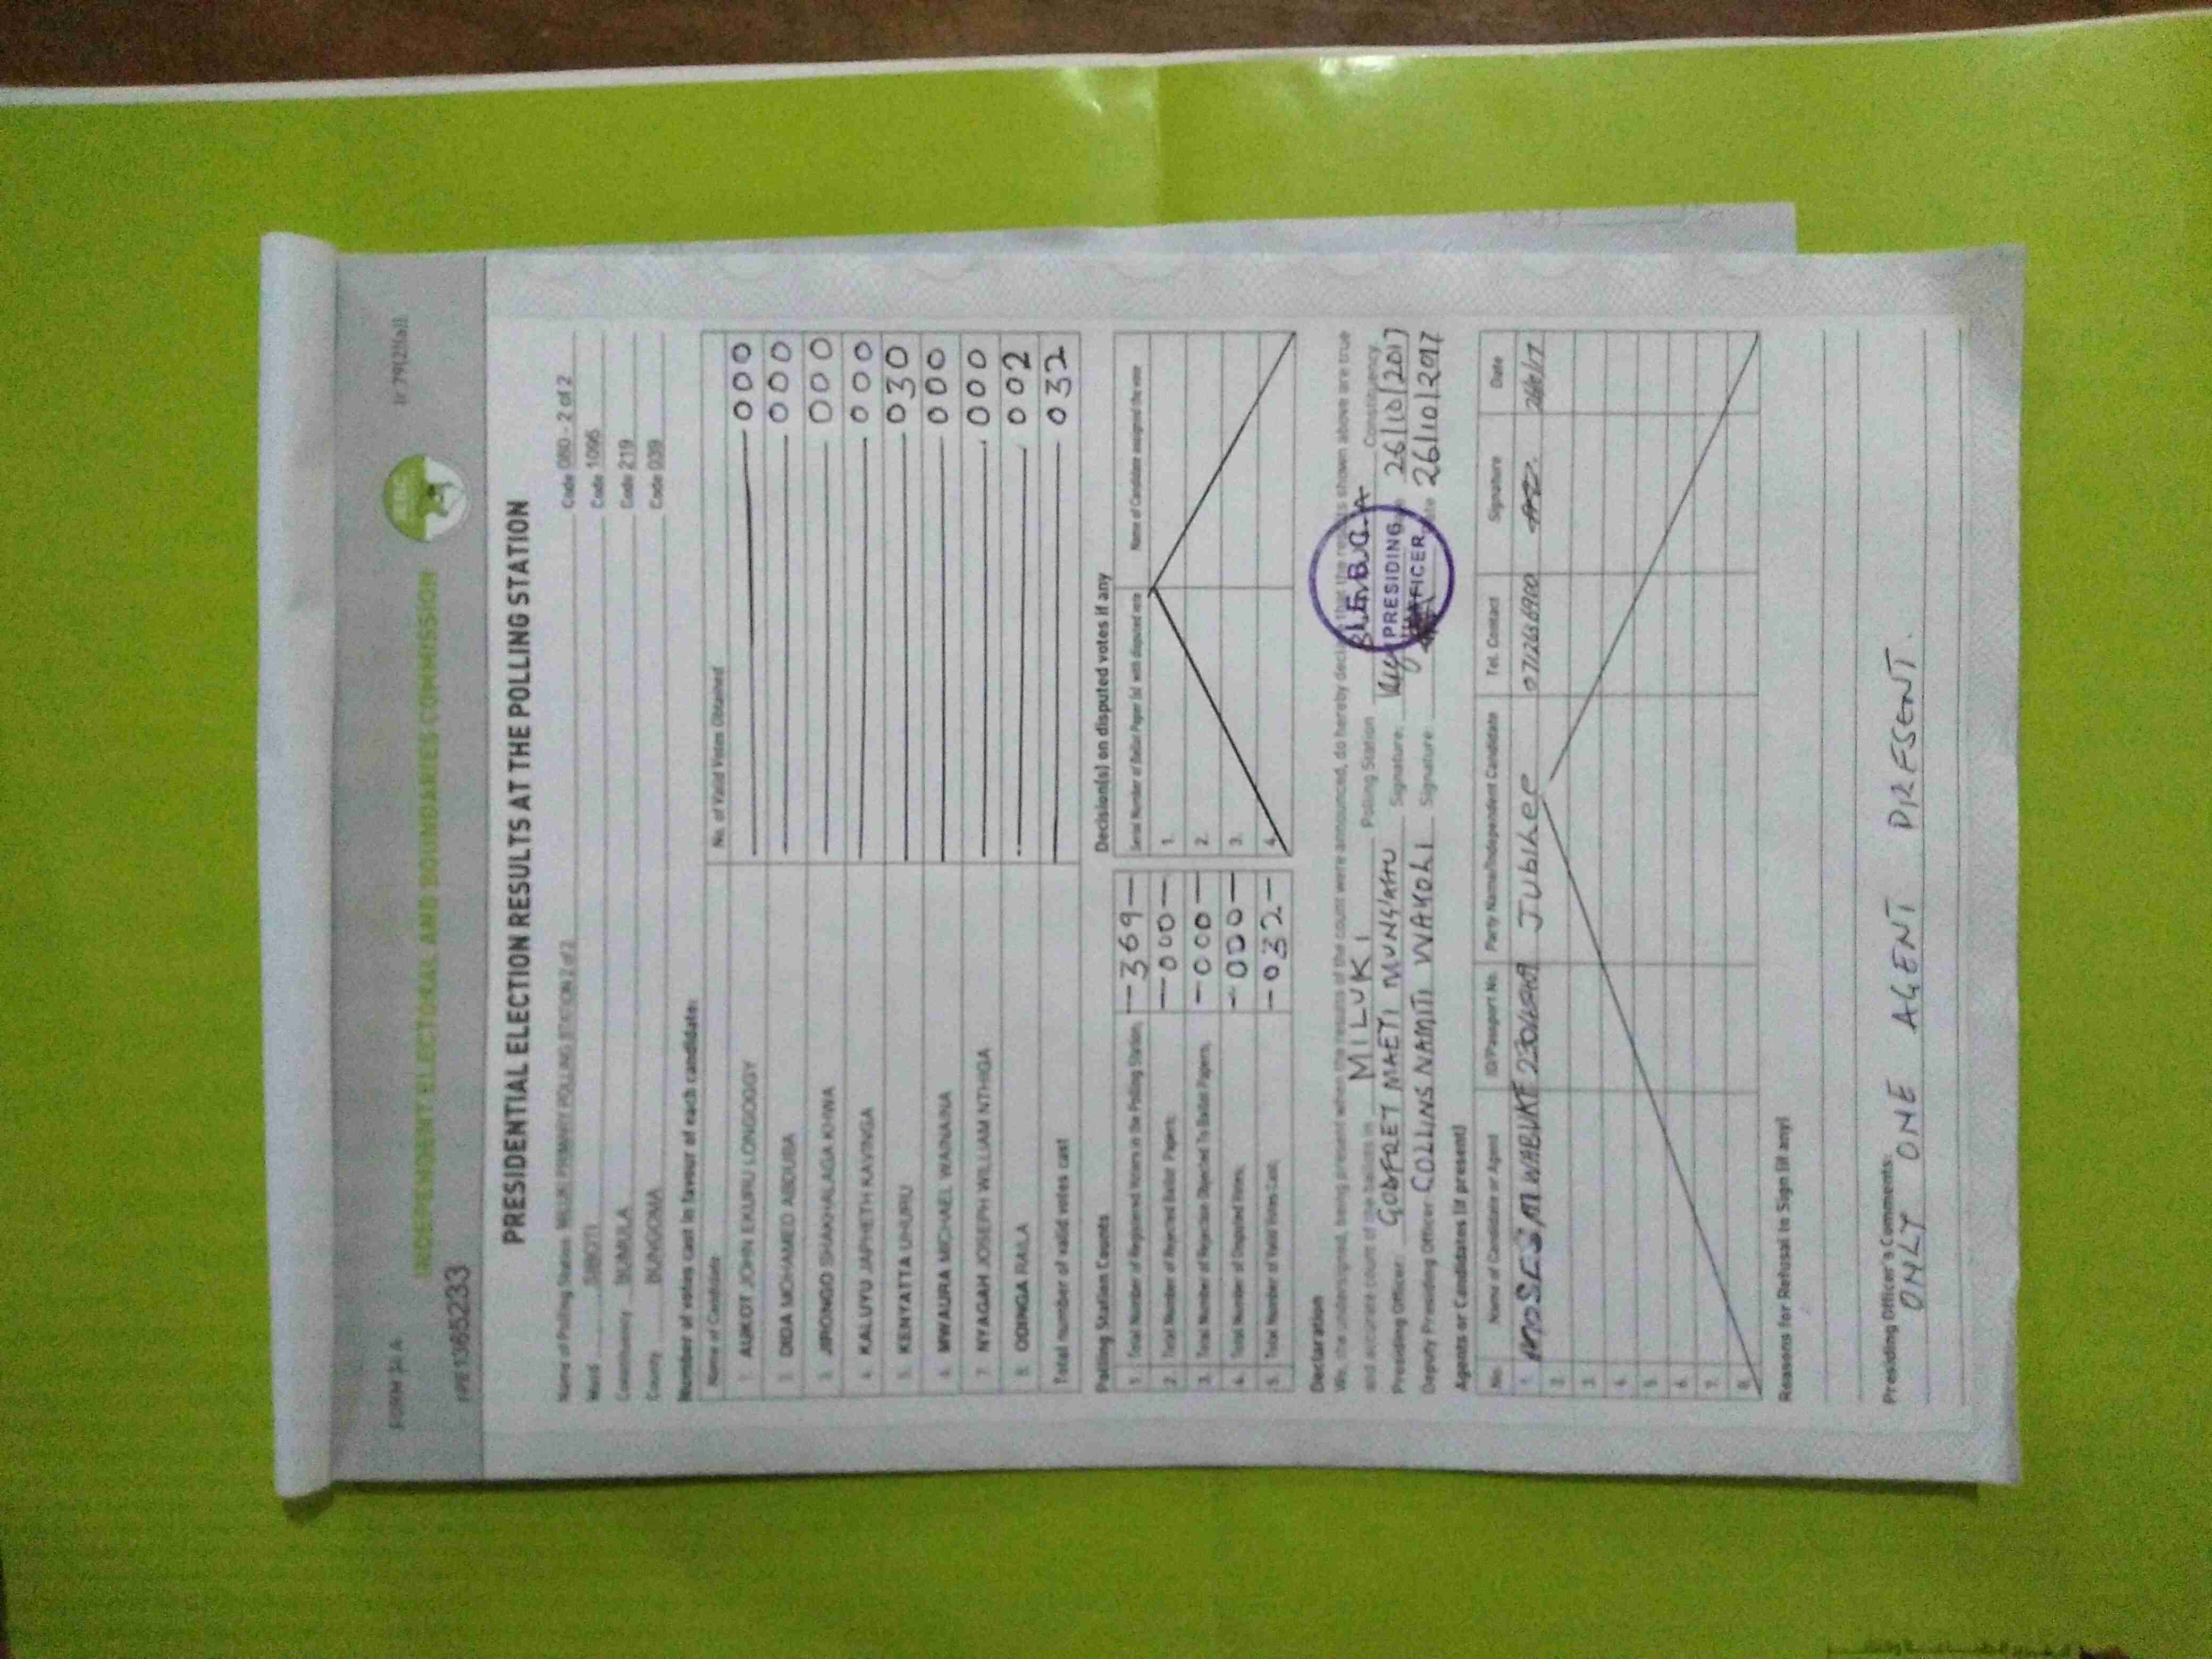 FORM 34 A
(r.79(2)(a))
INDEPENDENT ELECTORAL AND BOUNDARIES COMMISSION
PRESIDENTIAL ELECTION RESULTS AT THE POLLING STATION
Name of Polling Station MILUKI PRIMARY POLLING STATION 2 of 2 Code 080 - 2 of 2
Ward Code 1095
Constituency BUMULA Code 219
County BUNGOMA Code 039
Number of votes cast in favour of each candidate:
Name of Candidate No. of Valid Votes Obtained
1. AUKOT JOHN EKURU LONGOGGY 000
2. DIDA MOHAMED ABDUBA 000
3. JIRONGO SHAKHALAGA KHWA 000
4. KALUYU JAPHETH KAVINGA 000
5. KENYATTA UHURU 030
6. MWAURA MICHAEL WAINAINA 000
7. NYAGAH JOSEPH WILLIAM NTHIGA 000
8. ODINGA RAILA 002
Total number of valid votes cast 032
Polling Station Counts
1. Total Number of Registered Voters in the Polling Station; -369-
2. Total Number of Rejected Ballot Papers; -000-
3. Total Number of Rejection Objected To Ballot Papers; -000-
4. Total Number of Disputed Votes; -000-
5. Total Number of Valid Votes Cast; -032-
Decision(s) on disputed votes if any
Serial Number of Ballot Paper (s) with disputed vote Name of Candidate assigned the vote
1.
2.
3.
4.
Declaration
We, the undersigned, being present when the results of the count were announced, do hereby declare that the results shown above are true
and accurate count of the ballots in MILUKI Polling Station Constituency
Presiding Officer: GODFREY MAETI Signature: 26/10/2017
Deputy Presiding Officer COLLINS NAMITI WAYOLI Signature: 26/10/2017
PRESIDING
OFFICER
Agents or Candidates (if present)
No. Name of Candidate or Agent ID/Passport No. Party Name/Independent Candidate Tel. Contact Signature Date
1. MOSES Jubilee
2.
3.
4.
5.
6.
7.
8.
Reasons for Refusal to Sign (if any)
Presiding Officer's Comments:
ONLY ONE AGENT PRESENT.